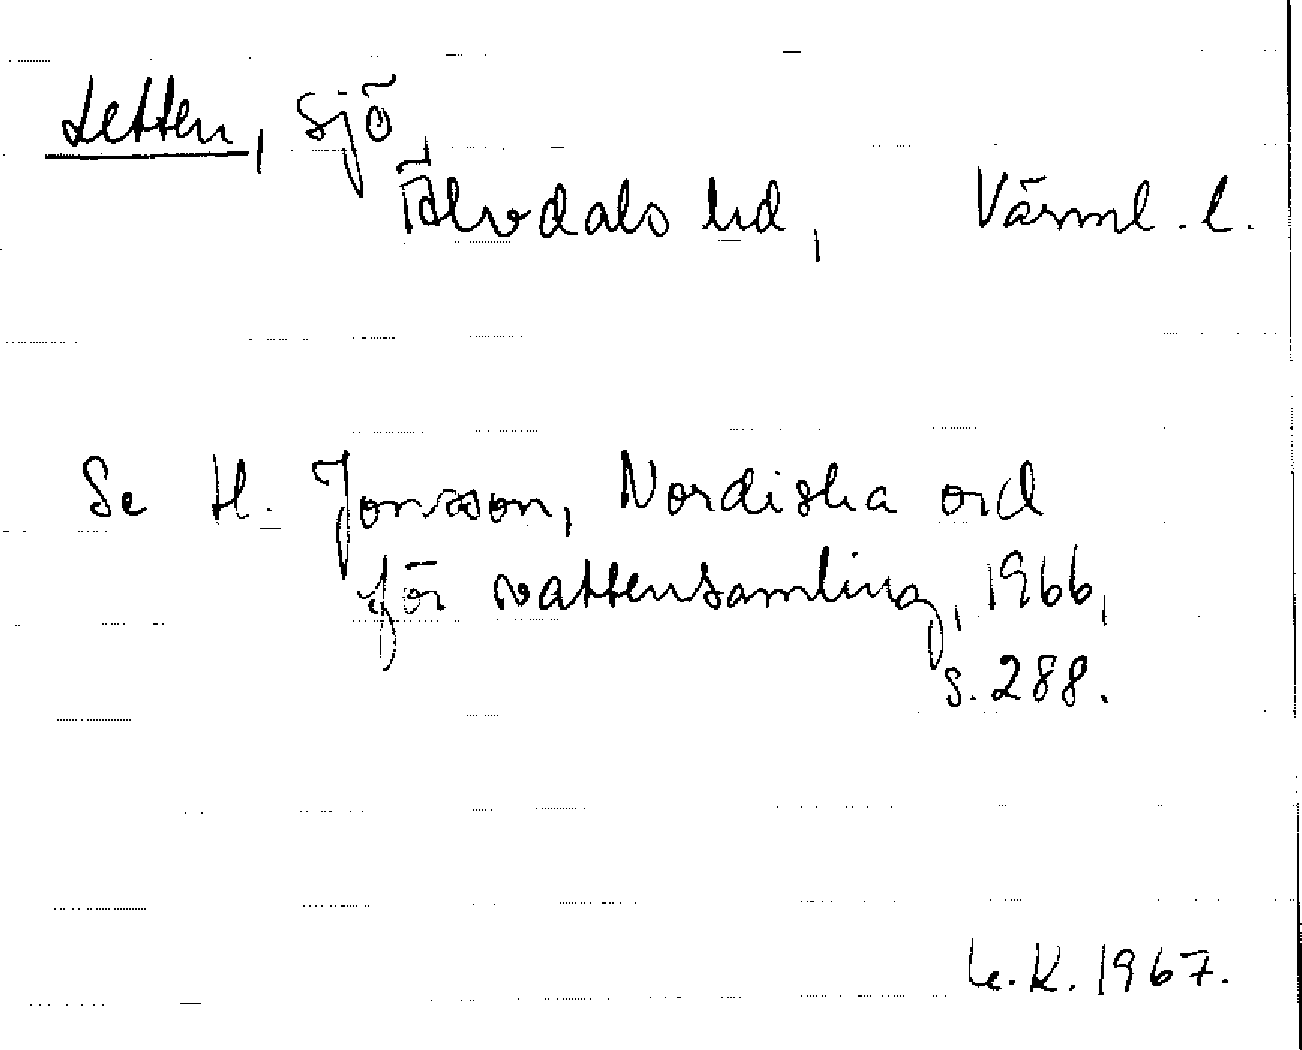 Letten, sjö
Älvdals hd, Värml. l.
Se H. Jonsson, Nordiska ord
för vattensamling, 1966,
s. 288.
K. 1967.